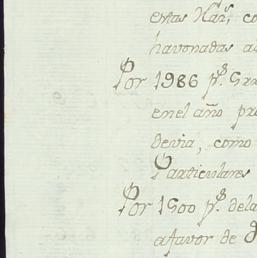 estas Nâs, co
havonadas a
Por 1986 p.s Gra
en el año pa
devia, como
Particulares
Por 1500 p.s dela
a favor de D